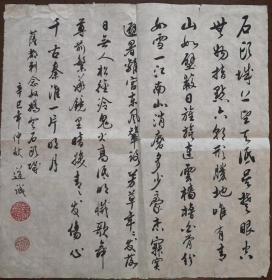 石頭城上望天低吳楚眼空
無物指點六朝形勝地唯有青
山如壁蔽日旌旗連雲檣櫓白骨紛
如雪一江南北消磨多少豪杰寂寞
避暑離宮東風輦路芳草年年發落
日無人松徑冷鬼火高低明滅歌舞
尊前繁華鏡里暗換青青髮傷心
千古秦淮一片明月
薩都剌念奴嬌登石頭城
辛巳年仲秋 廷誠